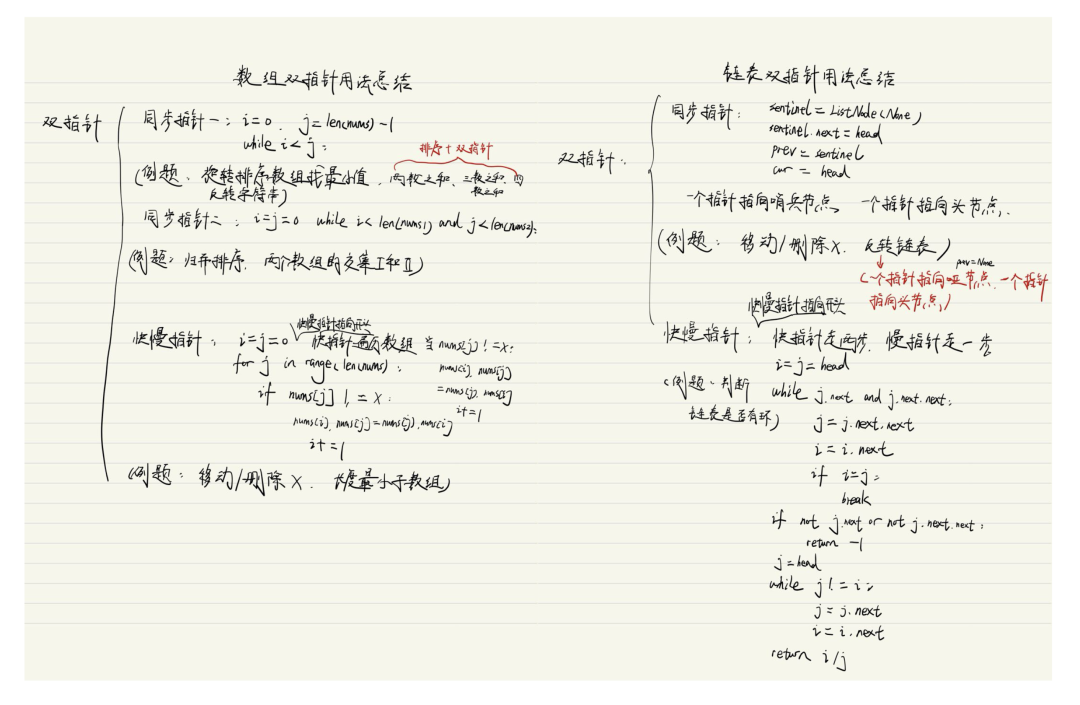 数组双指针用法总结
双指针
同步指针一: i=0. j=len(nums)-1
while i<j:
排序+双指针
(例题、旋转排序数组找最小值. 两数之和、三数之和、四数之和
反转字符串)
同步指针二: i=j=0 while i<len(nums1) and j<len(nums2):
(例题: 归并排序. 两个数组的交集I和II)
快慢指针指向开头
快慢指针: i=j=0 快指针遍历数组 当nums[j]!=x:
for j in range(len(nums)): nums[i], nums[j]
=nums[j], nums[i]
if nums[j] != x:
i+=1
nums[i], nums[j]=nums[j], nums[i]
i+=1
(例题: 移动/删除X. 长度最小子数组)
链表双指针用法总结
双指针:
同步指针: sentinel = ListNode(None)
sentinel.next = head
prev = sentinel
cur = head
一个指针指向哨兵节点、一个指针指向头节点.
(例题: 移动/删除X. 反转链表)
prev=None
(一个指针指向哑节点. 一个指针
指向头节点)
快慢指针指向开头
快慢指针: 快指针走两步. 慢指针走一步
i=j=head
(例题、判断
链表是否有环)
while j.next and j.next.next:
j = j.next.next
i = i.next
if i=j:
break
if not j.next or not j.next.next:
return -1
j=head
while j != i:
j = j.next
i = i.next
return i/j